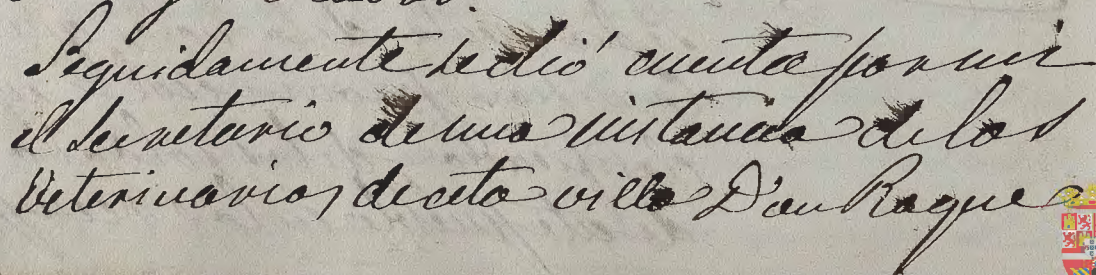 Seguidamente se dió cuenta por mi
el Secretario de una instancia de los
Veterinarios de esta villa Don Roque